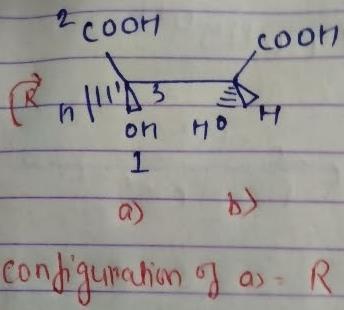 ²COOH
COOH
R
H
3
OH
HO
H
1
a)
b)
configuration of a) = R